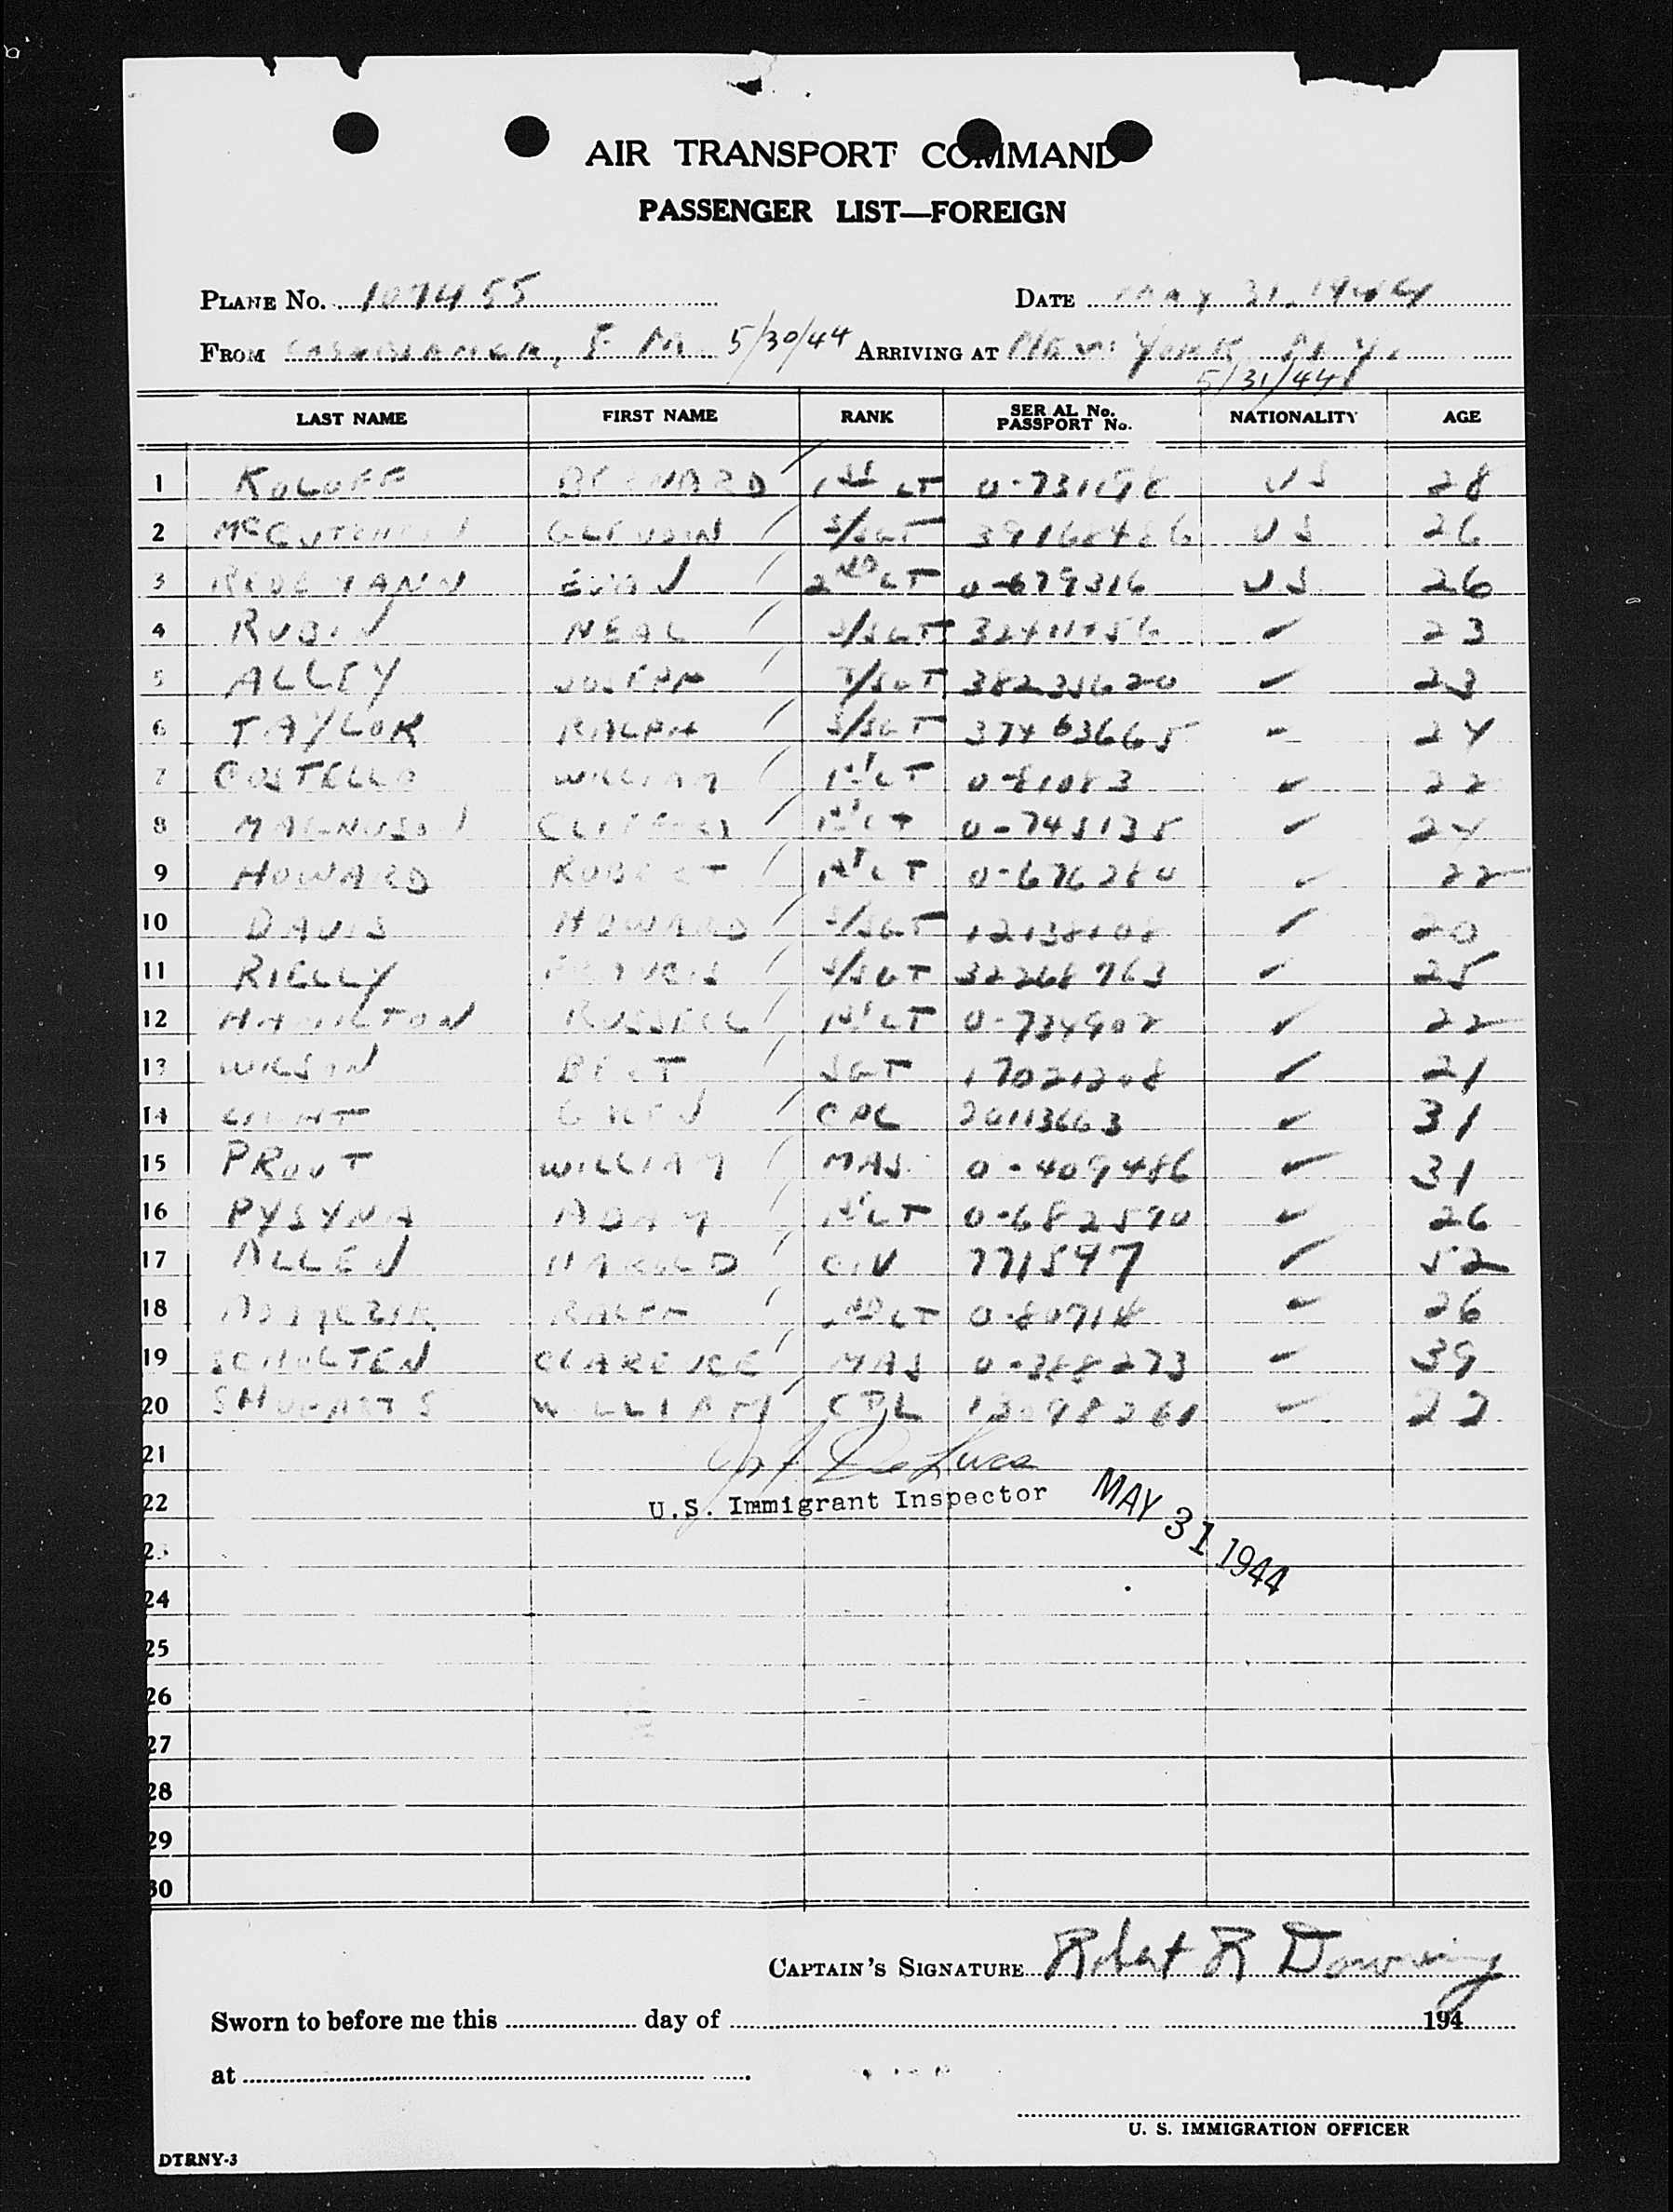 AIR TRANSPORT COMMAND
PASSENGER LIST—FOREIGN
PLANE No. 107455 DATE MAY 31, 1944
FROM CASABLANCA, F. M. 5/30/44 ARRIVING AT NEW YORK, N. Y.
5/31/44
LAST NAME FIRST NAME RANK SER AL No. PASSPORT No. NATIONALITY AGE
1 KOLOFF BERNARD 1ST LT 0-731198 US 28
2 McCUTCHEN S/SGT 39168486 US 26
3 2ND LT 0-679316 US 26
4 RUBIN NEAL S/SGT 32411756 ✓ 23
5 ALLEY JOSEPH T/SGT 38235620 ✓ 23
6 TAYLOR RALPH S/SGT 37463665 - 24
7 COSTELLO WILLIAM 1ST LT 0-81083 ✓ 22
8 MAGNUSON CLIFFORD 1ST LT 0-745135 ✓ 24
9 HOWARD ROBERT 1ST LT 0-676280 ✓ 22
10 DAVIS HOWARD S/SGT 12138108 ✓ 20
11 RIELLY FRANCIS S/SGT 32268763 ✓ 25
12 HAMILTON RUSSELL 1ST LT 0-734902 ✓ 22
13 WILSON BERT SGT 17021208 ✓ 21
14 LIGHT CPL 20113663 ✓ 31
15 PROUT WILLIAM MAJ 0-409486 ✓ 31
16 PYSYNA ADAM 1ST LT 0-682590 ✓ 26
17 ALLEN HAROLD CIV 771547 ✓ 52
18 RALPH 2ND LT 0-80718 ✓ 26
19 SCHOLTEN CLARENCE MAJ 0-388273 ✓ 39
20 SHUGARTS WILLIAM CPL 13098261 ✓ 22
21 De Luca
22 U.S. Immigrant Inspector MAY 31 1944
23
24
25
26
27
28
29
30
CAPTAIN'S SIGNATURE Robert R Downing
Sworn to before me this day of 194
at
U. S. IMMIGRATION OFFICER
DTRNY-3